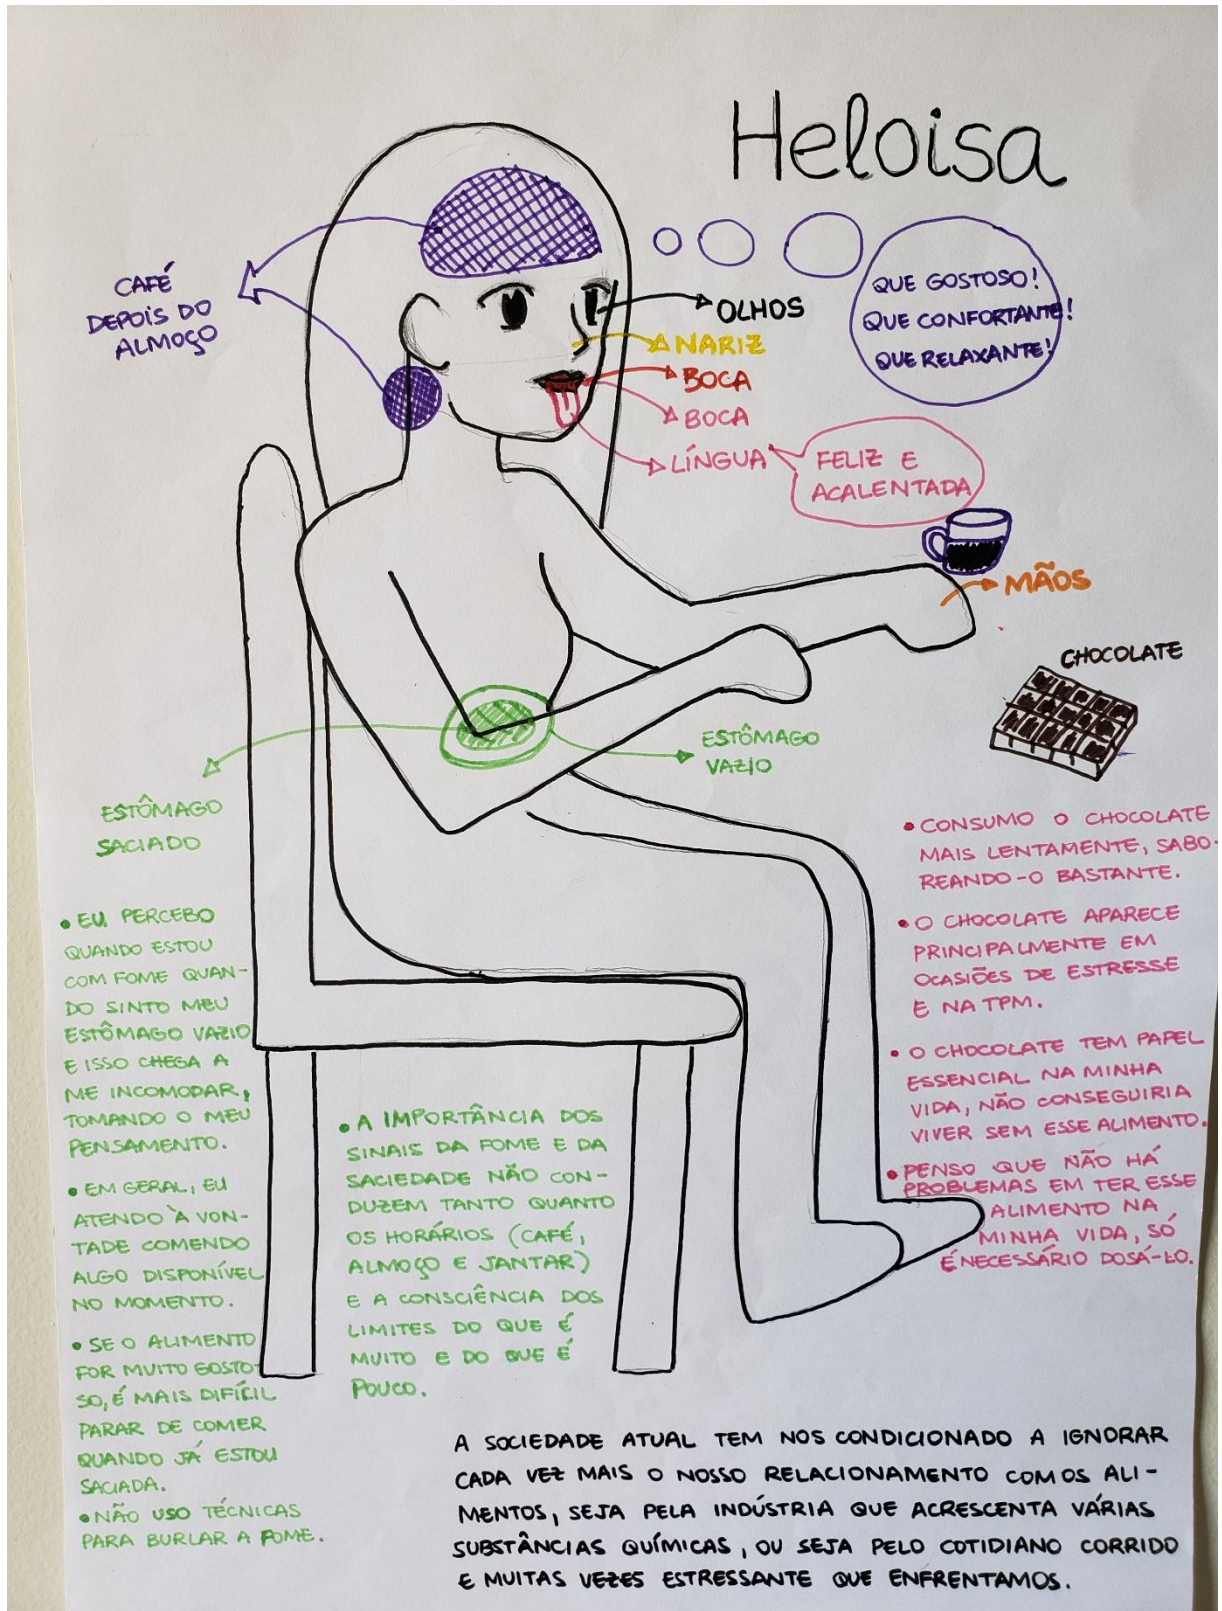 Heloisa
CAFÉ
DEPOIS DO
ALMOÇO
QUE GOSTOSO!
QUE CONFORTANTE!
QUE RELAXANTE!
OLHOS
NARIZ
BOCA
BOCA
LÍNGUA
FELIZ E
ACALENTADA
MÃOS
CHOCOLATE
ESTÔMAGO
VAZIO
ESTÔMAGO
SACIADO
• EU PERCEBO
QUANDO ESTOU
COM FOME QUAN-
DO SINTO MEU
ESTÔMAGO VAZIO
E ISSO CHEGA A
ME INCOMODAR,
TOMANDO O MEU
PENSAMENTO.
• EM GERAL, EU
ATENDO À VON-
TADE COMENDO
ALGO DISPONÍVEL
NO MOMENTO.
• SE O ALIMENTO
FOR MUITO GOSTO-
SO, É MAIS DIFÍCIL
PARAR DE COMER
QUANDO JÁ ESTOU
SACIADA.
• NÃO USO TÉCNICAS
PARA BURLAR A FOME.
• A IMPORTÂNCIA DOS
SINAIS DA FOME E DA
SACIEDADE NÃO CON-
DUZEM TANTO QUANTO
OS HORÁRIOS (CAFÉ,
ALMOÇO E JANTAR)
E A CONSCIÊNCIA DOS
LIMITES DO QUE É
MUITO E DO QUE É
POUCO.
• CONSUMO O CHOCOLATE
MAIS LENTAMENTE, SABO-
REANDO-O BASTANTE.
• O CHOCOLATE APARECE
PRINCIPALMENTE EM
OCASIÕES DE ESTRESSE
E NA TPM.
• O CHOCOLATE TEM PAPEL
ESSENCIAL NA MINHA
VIDA, NÃO CONSEGUIRIA
VIVER SEM ESSE ALIMENTO.
• PENSO QUE NÃO HÁ
PROBLEMAS EM TER ESSE
ALIMENTO NA
MINHA VIDA, SÓ
É NECESSÁRIO DOSÁ-LO.
A SOCIEDADE ATUAL TEM NOS CONDICIONADO A IGNORAR
CADA VEZ MAIS O NOSSO RELACIONAMENTO COM OS ALI-
MENTOS, SEJA PELA INDÚSTRIA QUE ACRESCENTA VÁRIAS
SUBSTÂNCIAS QUÍMICAS, OU SEJA PELO COTIDIANO CORRIDO
E MUITAS VEZES ESTRESSANTE QUE ENFRENTAMOS.